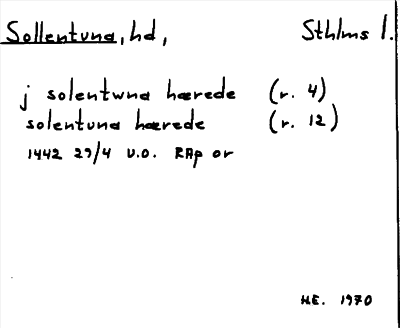 Sollentuna, hd, Sthlms l.
j solentwna hærede (r. 4)
solentuna hærede (r. 12)
1442 29/4 u.o. RAp or
HE. 1970